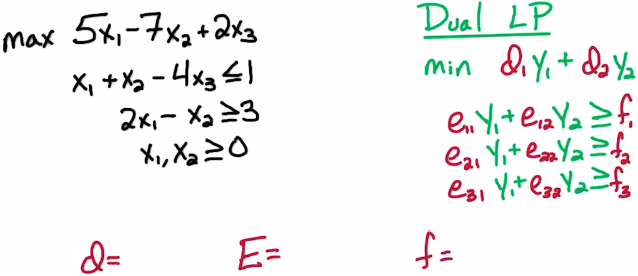 max 5x₁-7x₂+2x₃
x₁+x₂-4x₃≤1
2x₁-x₂≥3
x₁,x₂≥0
Dual LP
min d₁y₁+d₂y₂
e₁₁y₁+e₁₂y₂≥f₁
e₂₁y₁+e₂₂y₂≥f₂
e₃₁y₁+e₃₂y₂≥f₃
d= E= f=